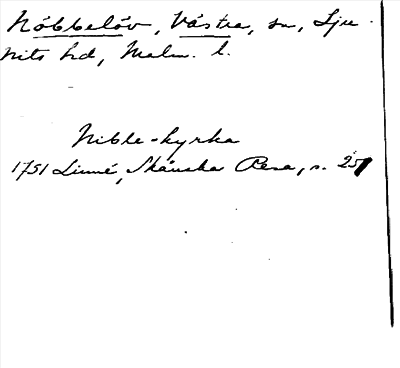 Nöbbelöv, Västra, sn, Lju-
nits hd, Malm. l.
Nible-kyrka
1751 Linné, Skånska Resa, s.